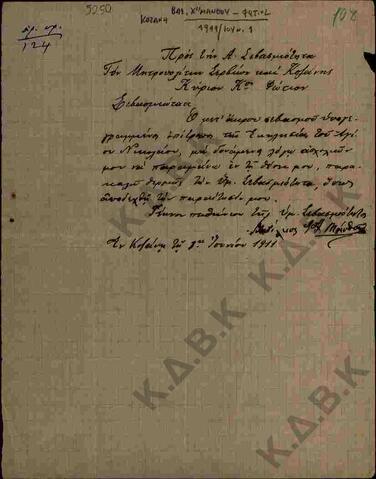 5250 ΚΟΖΑΝΗ ΒΑΣ. Χ"ΜΑΝΘΟΥ - ΦΩΤΙΟΣ
1911/ΙΟΥΝ. 1
αρ. πρ.
124
Πρὸς τὴν Α. Σεβασμιότητα
Τὸν Μητροπολίτην Σερβίων καὶ Κοζάνης
Κύριον Κον Φώτιον
Σεβασμιώτατε
Ὁ μετὰ σεβασμοῦ ὑπογε-
γραμμένος ἐπίτροπος τῆς Ἐκκλησίας τοῦ Ἁγί-
ου Νικολάου, μὴ δυνάμενος λόγῳ ἀσχολιῶν
μου νὰ παραμείνω ἐν τῇ θέσει μου, παρα-
καλῶ θερμῶς τὴν Ὑμ. Σεβασμιότητα, ὅπως
ἀποδεχθῇ τὴν παραίτησίν μου.
τῆς Ὑμ. Σεβασμιότητος
Ἐν Κοζάνῃ τῇ 1ῃ Ἰουνίου 1911
Κ.Δ.Β.Κ
Κ.Δ.Β.Κ
Κ.Δ.Β.Κ